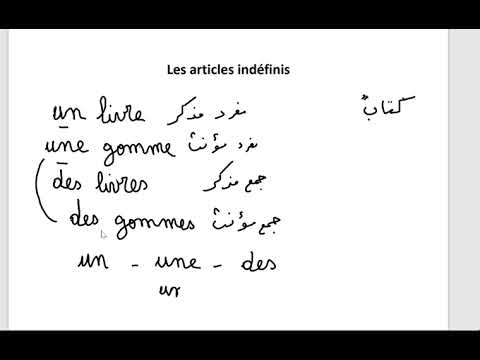 Les articles indéfinis
un livre مفرد مذكر كتابٌ
une gomme مفرد مؤنث
des livres جمع مذكر
des gommes جمع مؤنث
un - une - des
un